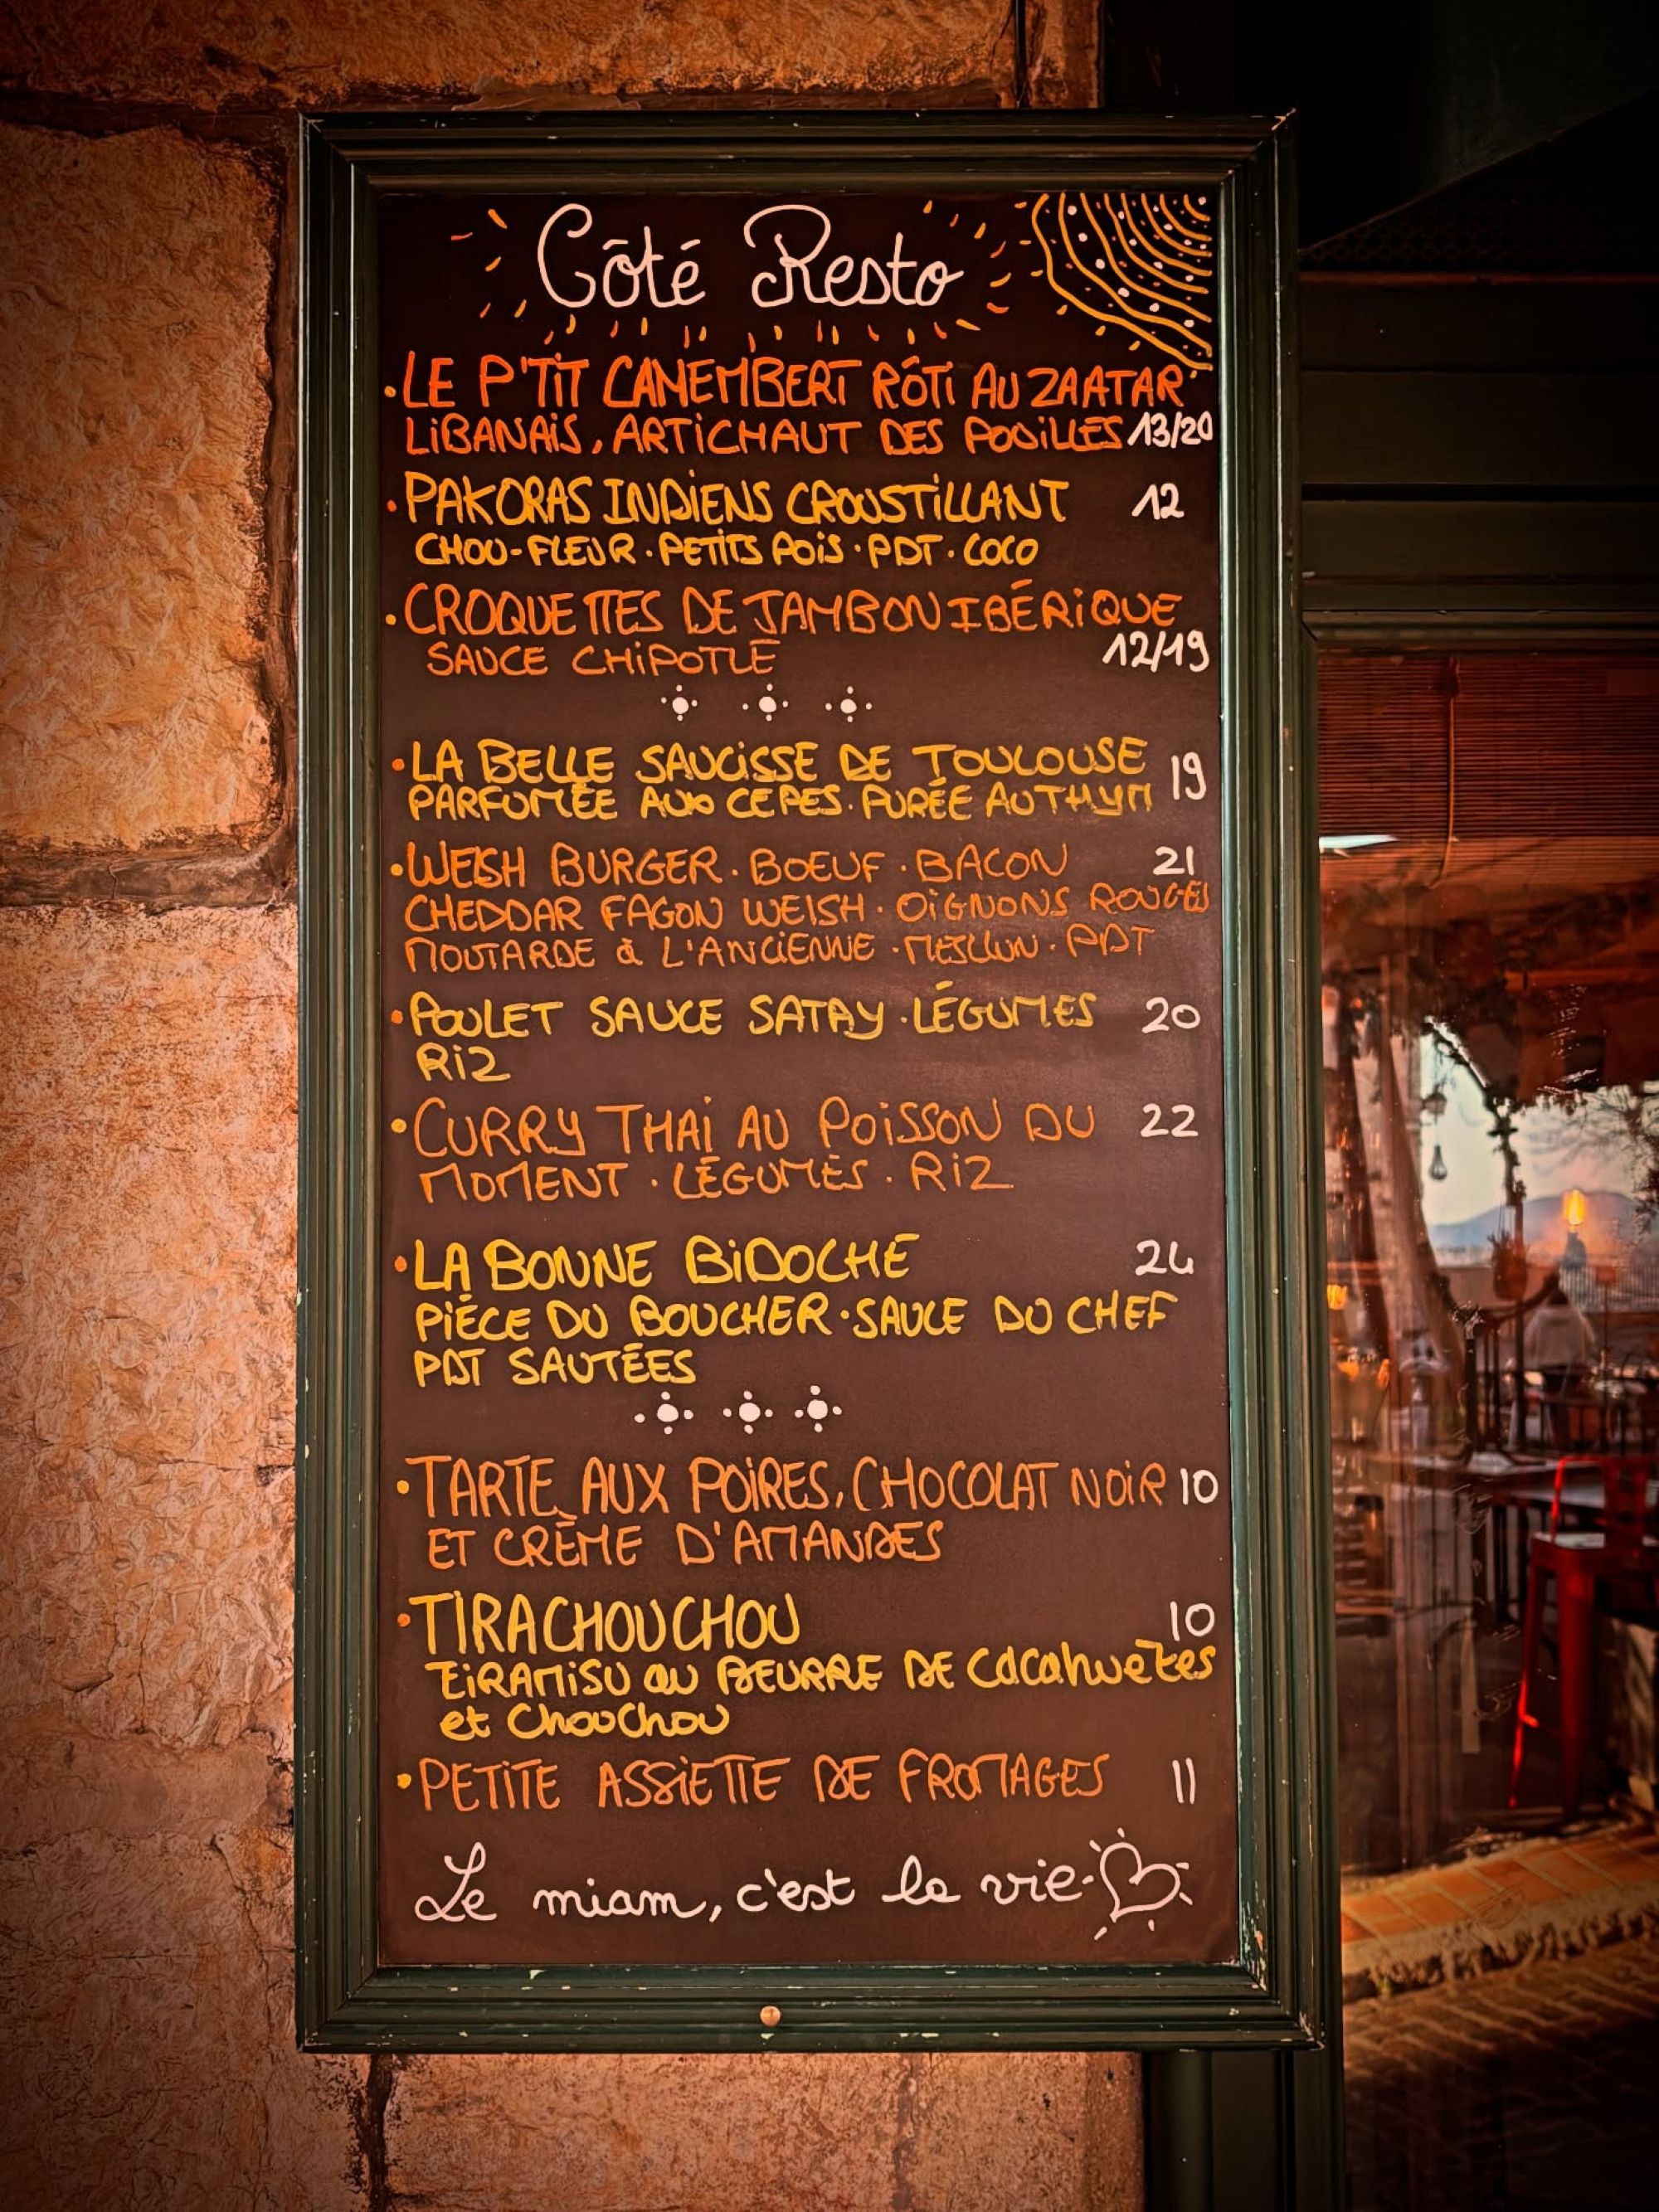 Côté Resto
• LE P'TIT CAMEMBERT RÔTI AU ZAATAR
LIBANAIS, ARTICHAUT DES POUILLES 13/20
• PAKORAS INDIENS CROUSTILLANT 12
CHOU-FLEUR · PETITS POIS · PDT · COCO
• CROQUETTES DE JAMBON IBÉRIQUE
SAUCE CHIPOTLE 12/19
• LA BELLE SAUCISSE DE TOULOUSE 19
PARFUMÉE AUX CEPES · PURÉE AU THYM
• WELSH BURGER · BOEUF · BACON 21
CHEDDAR FAGON WELSH · OIGNONS ROUGES
MOUTARDE à L'ANCIENNE · MESCLUN · PDT
• POULET SAUCE SATAY · LÉGUMES 20
RIZ
• CURRY THAÏ AU POISSON DU 22
MOMENT · LÉGUMES · RIZ
• LA BONNE BIDOCHE 24
PIÉCE DU BOUCHER · SAUCE DU CHEF
PDT SAUTÉES
• TARTE AUX POIRES, CHOCOLAT NOIR 10
ET CRÈME D'AMANDES
• TIRACHOUCHOU 10
TIRAMISU au BEURRE DE Cacahuetes
et ChouChou
• PETITE ASSIETTE DE FROMAGES 11
Le miam, c'est la vie